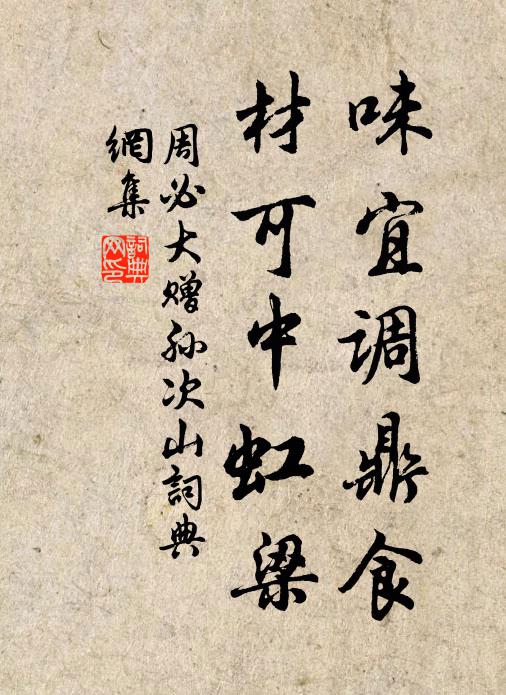 味宜调鼎食
材可中虹梁
周必大赠孙次山詞典
網集
詞典
网印